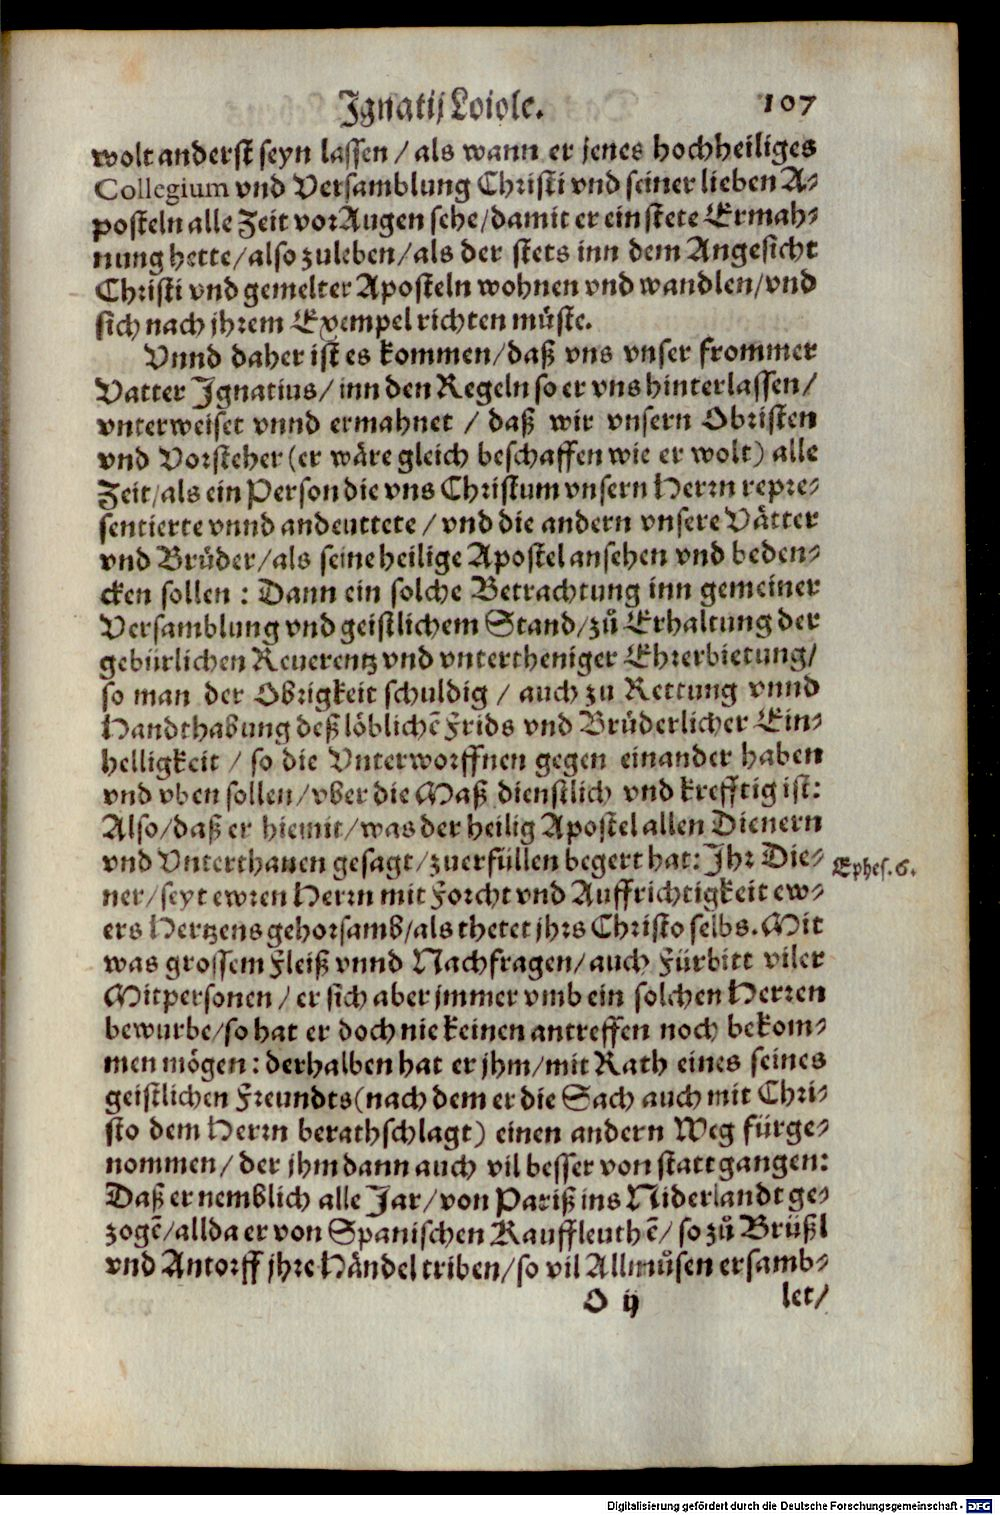 Ignatij Loiole. 107
wolt anderst seyn lassen / als wann er jenes hochheiliges
Collegium vnd Versamblung Christi vnd seiner lieben A-
posteln alle Zeit vor Augen sehe / damit er ein stete Ermah-
nung hette / also zuleben / als der stets inn dem Angesicht
Christi vnd gemelter Aposteln wohnen vnd wandlen / vnd
sich nach jhrem Exempel richten müste.
Vnnd daher ist es kommen / daß vns vnser frommer
Vatter Ignatius / inn den Regeln so er vns hinterlassen /
vnterweiset vnnd ermahnet / daß wir vnsern Obristen
vnd Vorsteher (er wäre gleich beschaffen wie er wolt) alle
Zeit / als ein Person die vns Christum vnsern Herrn repre-
sentierte vnnd andeuttete / vnd die andern vnsere Vätter
vnd Brüder / als seine heilige Apostel ansehen vnd beden-
cken sollen : Dann ein solche Betrachtung inn gemeiner
Versamblung vnd geistlichem Stand / zů Erhaltung der
gebürlichen Reuerentz vnd vntertheniger Ehrerbietung /
so man der Obrigkeit schuldig / auch zu Rettung vnnd
Handthabung deß löblichẽ Frids vnd Brüderlicher Ein-
helligkeit / so die Vnterworffnen gegen einander haben
vnd vben sollen / vber die Maß dienstlich vnd krefftig ist:
Also / daß er hiemit / was der heilig Apostel allen Dienern
vnd Vnterthanen gesagt / zuerfüllen begert hat: Ihr Die-
Ephes. 6.
ner / seyt ewren Herrn mit Forcht vnd Auffrichtigkeit ew-
ers Hertzens gehorsamb / als thetet jhrs Christo selbs. Mit
was grossem Fleiß vnnd Nachfragen / auch Fürbitt viler
Mitpersonen / er sich aber jmmer vmb ein solchen Herren
bewurbe / so hat er doch nie keinen antreffen noch bekom-
men mögen: derhalben hat er jhm / mit Rath eines seines
geistlichen Freundts (nach dem er die Sach auch mit Chri-
sto dem Herrn berathschlagt) einen andern Weg fürge-
nommen / der jhm dann auch vil besser von statt gangen:
Daß er nemblich alle Jar / von Pariß ins Niderlandt ge-
zogẽ / allda er von Spanischen Kauffleuthẽ / so zů Brüßl
vnd Antorff jhre Händel triben / so vil Allmůsen ersamb-
O ij let /
Digitalisierung gefördert durch die Deutsche Forschungsgemeinschaft - DFG